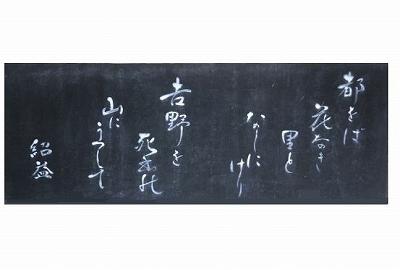 都をば
花なき
里と
なしに
けり
吉野を
死出の
山に
うつして
紹益